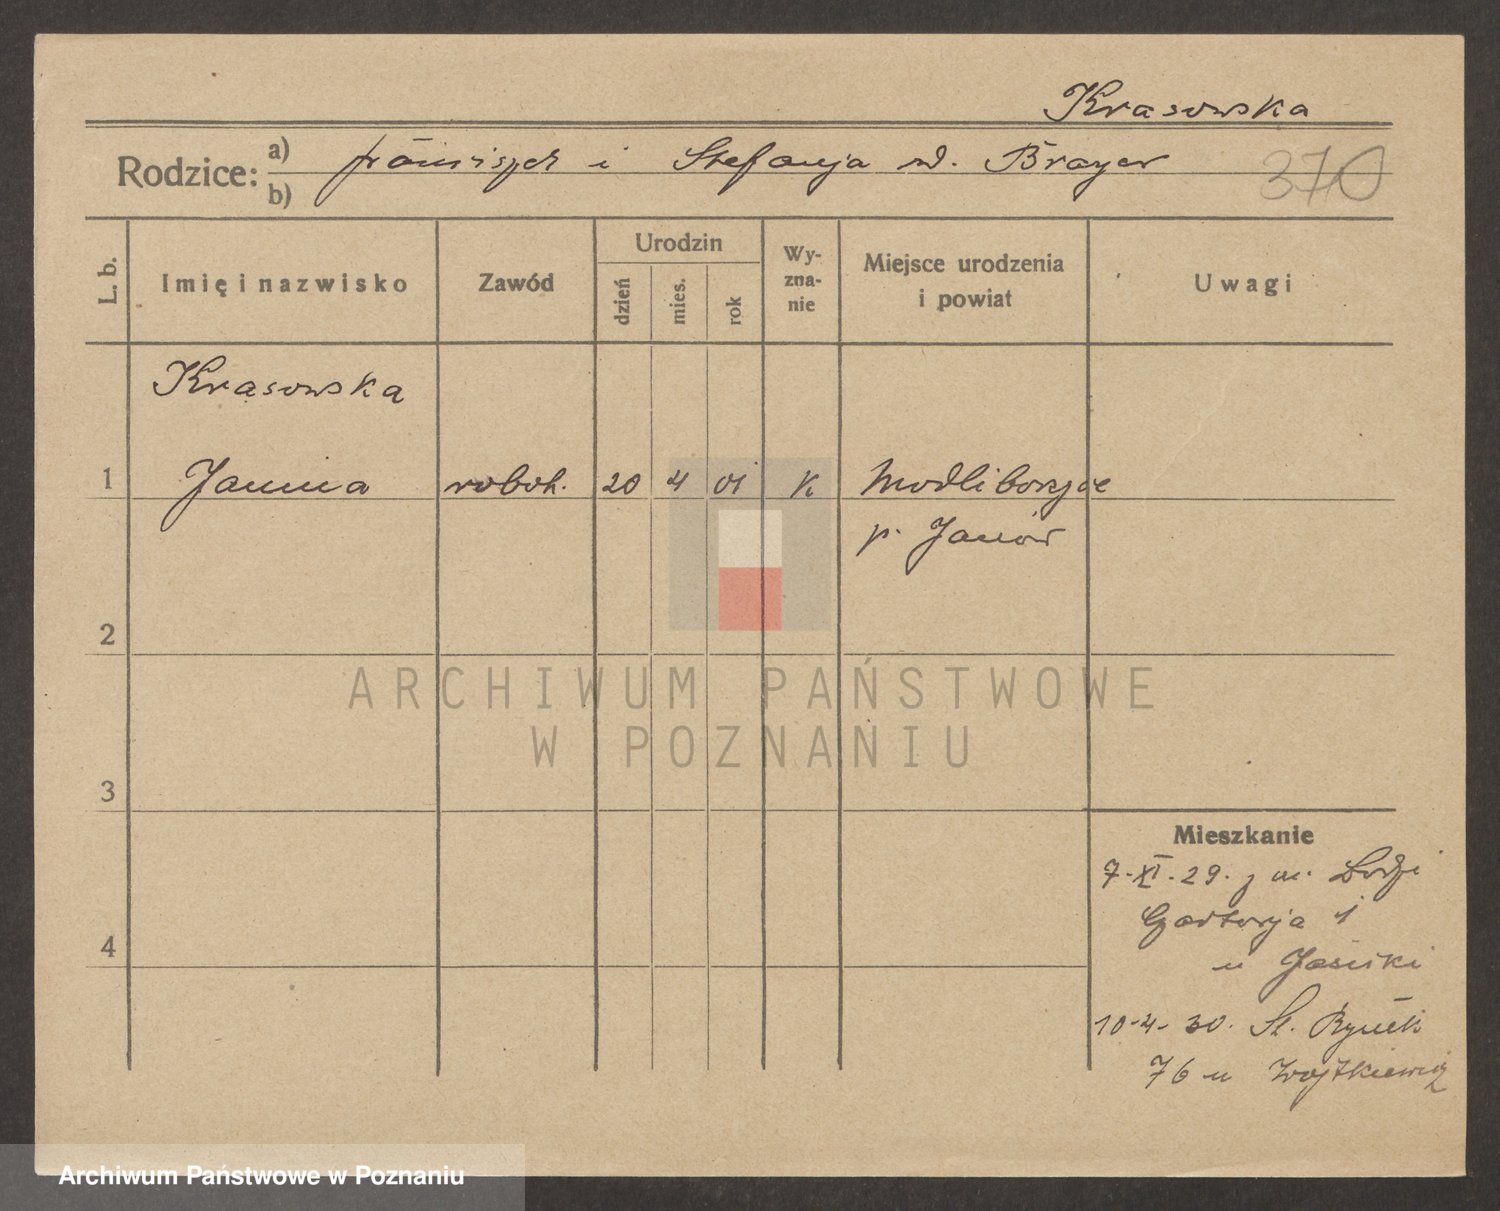 Krasowska
Rodzice: a) Franciszek i Stefanja zd. Brayer
b)
370
L. b.
Imię i nazwisko
Zawód
Urodzin
dzień
mies.
rok
Wy-
zna-
nie
Miejsce urodzenia
i powiat
Uwagi
Krasowska
1 Janina robotn. 20 4 01 K Modliborzyce
p. Janów
2
3
4
Mieszkanie
7-XI-29. z m. Łodzi
1
u Jasiński
10-4-30. St. Rynek
76 u Wojtkiewicz
ARCHIWUM PAŃSTWOWE
W POZNANIU
Archiwum Państwowe w Poznaniu